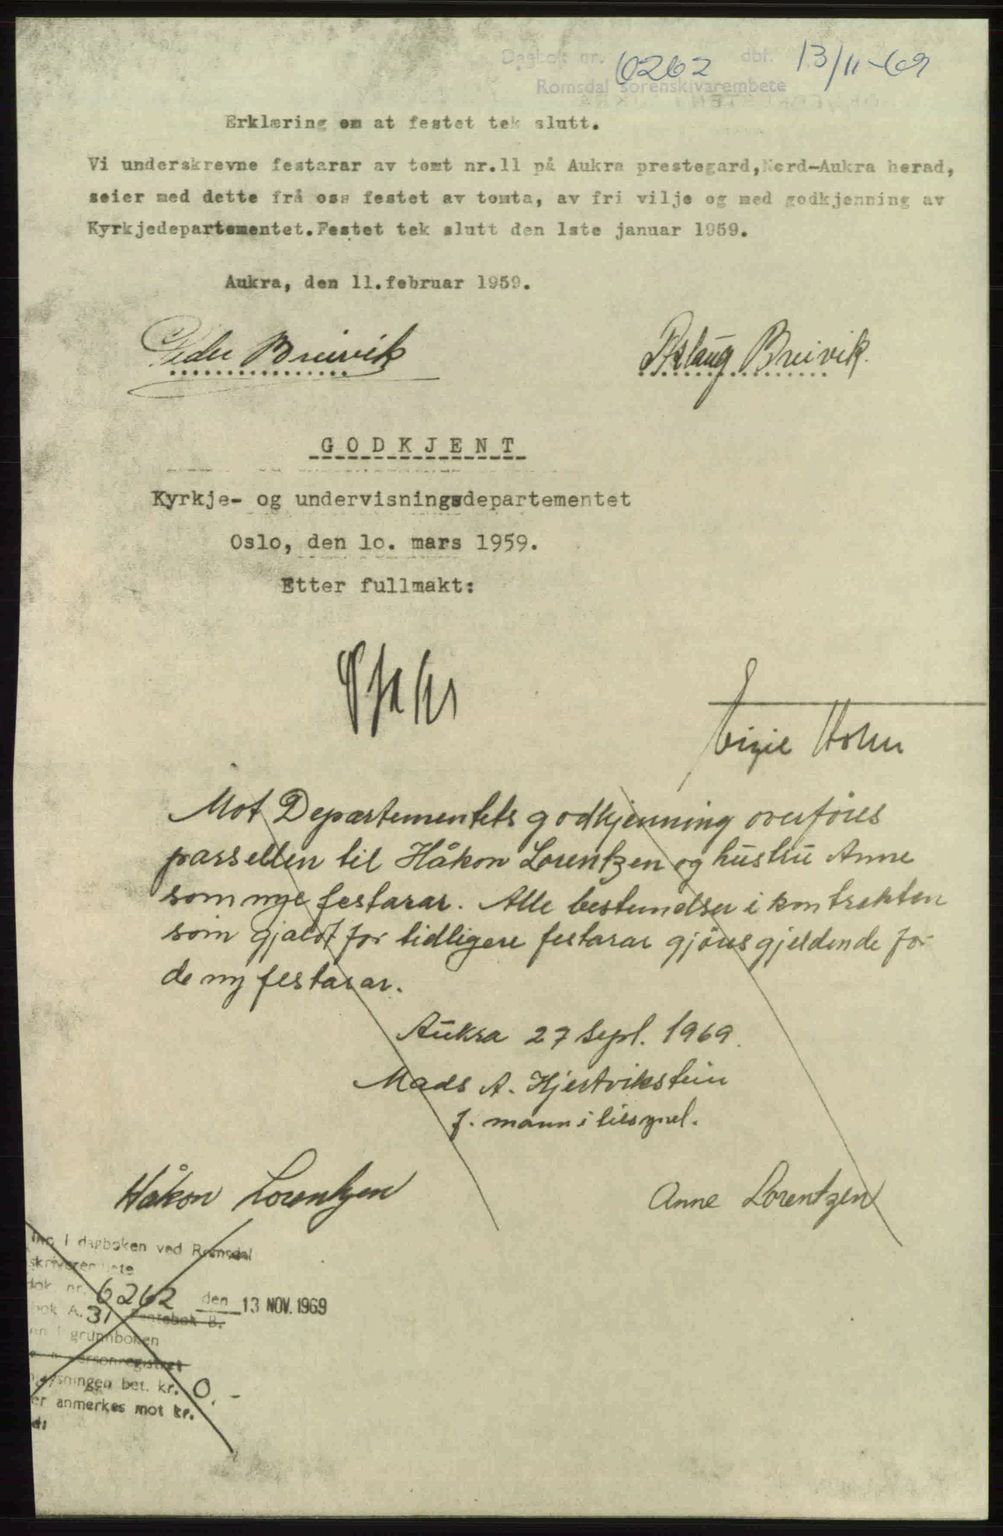 Dagbok nr. 6262 dbf. 13/11-69
Romsdal sorenskrivarembete
Erklæring om at festet tek slutt.
Vi underskrevne festarar av tomt nr.11 på Aukra prestegard,Nord-Aukra herad,
seier med dette frå oss festet av tomta, av fri vilje og med godkjenning av
Kyrkjedepartementet.Festet tek slutt den 1ste januar 1959.
Aukra, den 11.februar 1959.
Peder Breivik
Aslaug Breivik.
GODKJENT
Kyrkje- og undervisningsdepartementet
Oslo, den 1o. mars 1959.
Etter fullmakt:
Holm
Mot Departementets godkjenning overføres
parsellen til Håkon Lorentzen og hustru Anne
som nye festarar. Alle bestemelser i kontrakten
som gjaldt for tidligere festarar gjøres gjeldende for
de ny festarar.
Aukra 27 Sept. 1969.
Mads A. Hjertvikstein
f. mann i tilsynet.
Håkon Lorentzen
Anne Lorentzen
I dagboken ved Romsdal
dok. nr. 6262 den 13 NOV. 1969
bok A. 31 Pantebok B.
i grunnboken
personregistret
bet. kr. 0.-
anmerkes mot kr.